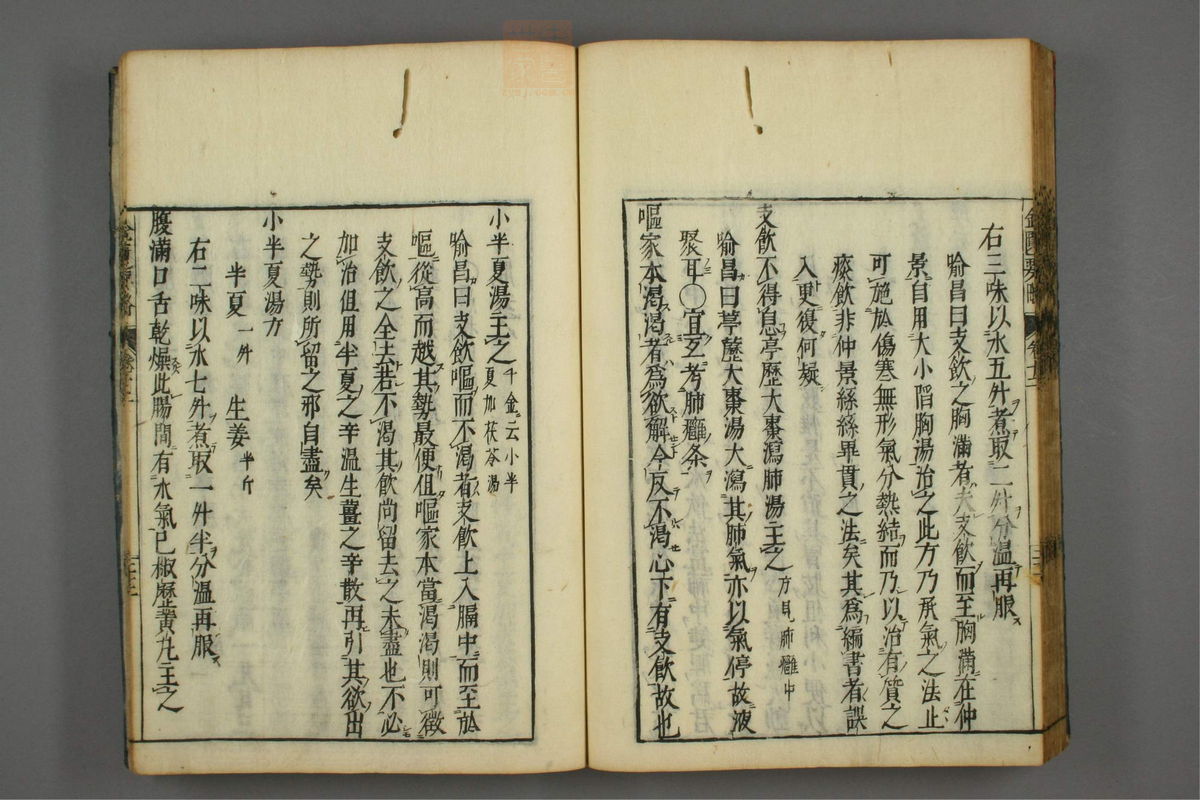 右三味以水五升煮取二升分温再服
喻昌曰支飲之胸滿者夫支飲而至胸滿在仲
景自用大小陷胸湯治之此方乃承氣之法止
可施於傷寒無形氣分熱結而乃以治有質之
痰飲非仲景絲絲畢貫之法矣其為編書者誤
入更復何疑
支飲不得息葶藶大棗瀉肺湯主之方見肺癰中
喻昌曰葶藶大棗湯大瀉其肺氣亦以氣停故液
聚耳〇宜互考肺癰条
嘔家本渴渴者為欲解今反不渴心下有支飲故也
小半夏湯主之千金云小半夏加茯苓湯
喻昌曰支飲嘔而不渴者支飲上入膈中而至於
嘔從高而越其勢最便但嘔家本當渴渴則可徵
支飲之全去若不渴其飲尚留去之未盡也不必
加治但用半夏之辛温生薑之辛散再引其欲出
之勢則所留之邪自盡矣
小半夏湯方
半夏一升 生姜半斤
右二味以水七升煮取一升半分温再服
腹滿口舌乾燥此腸間有水氣已椒歷黃丸主之
金匱要略